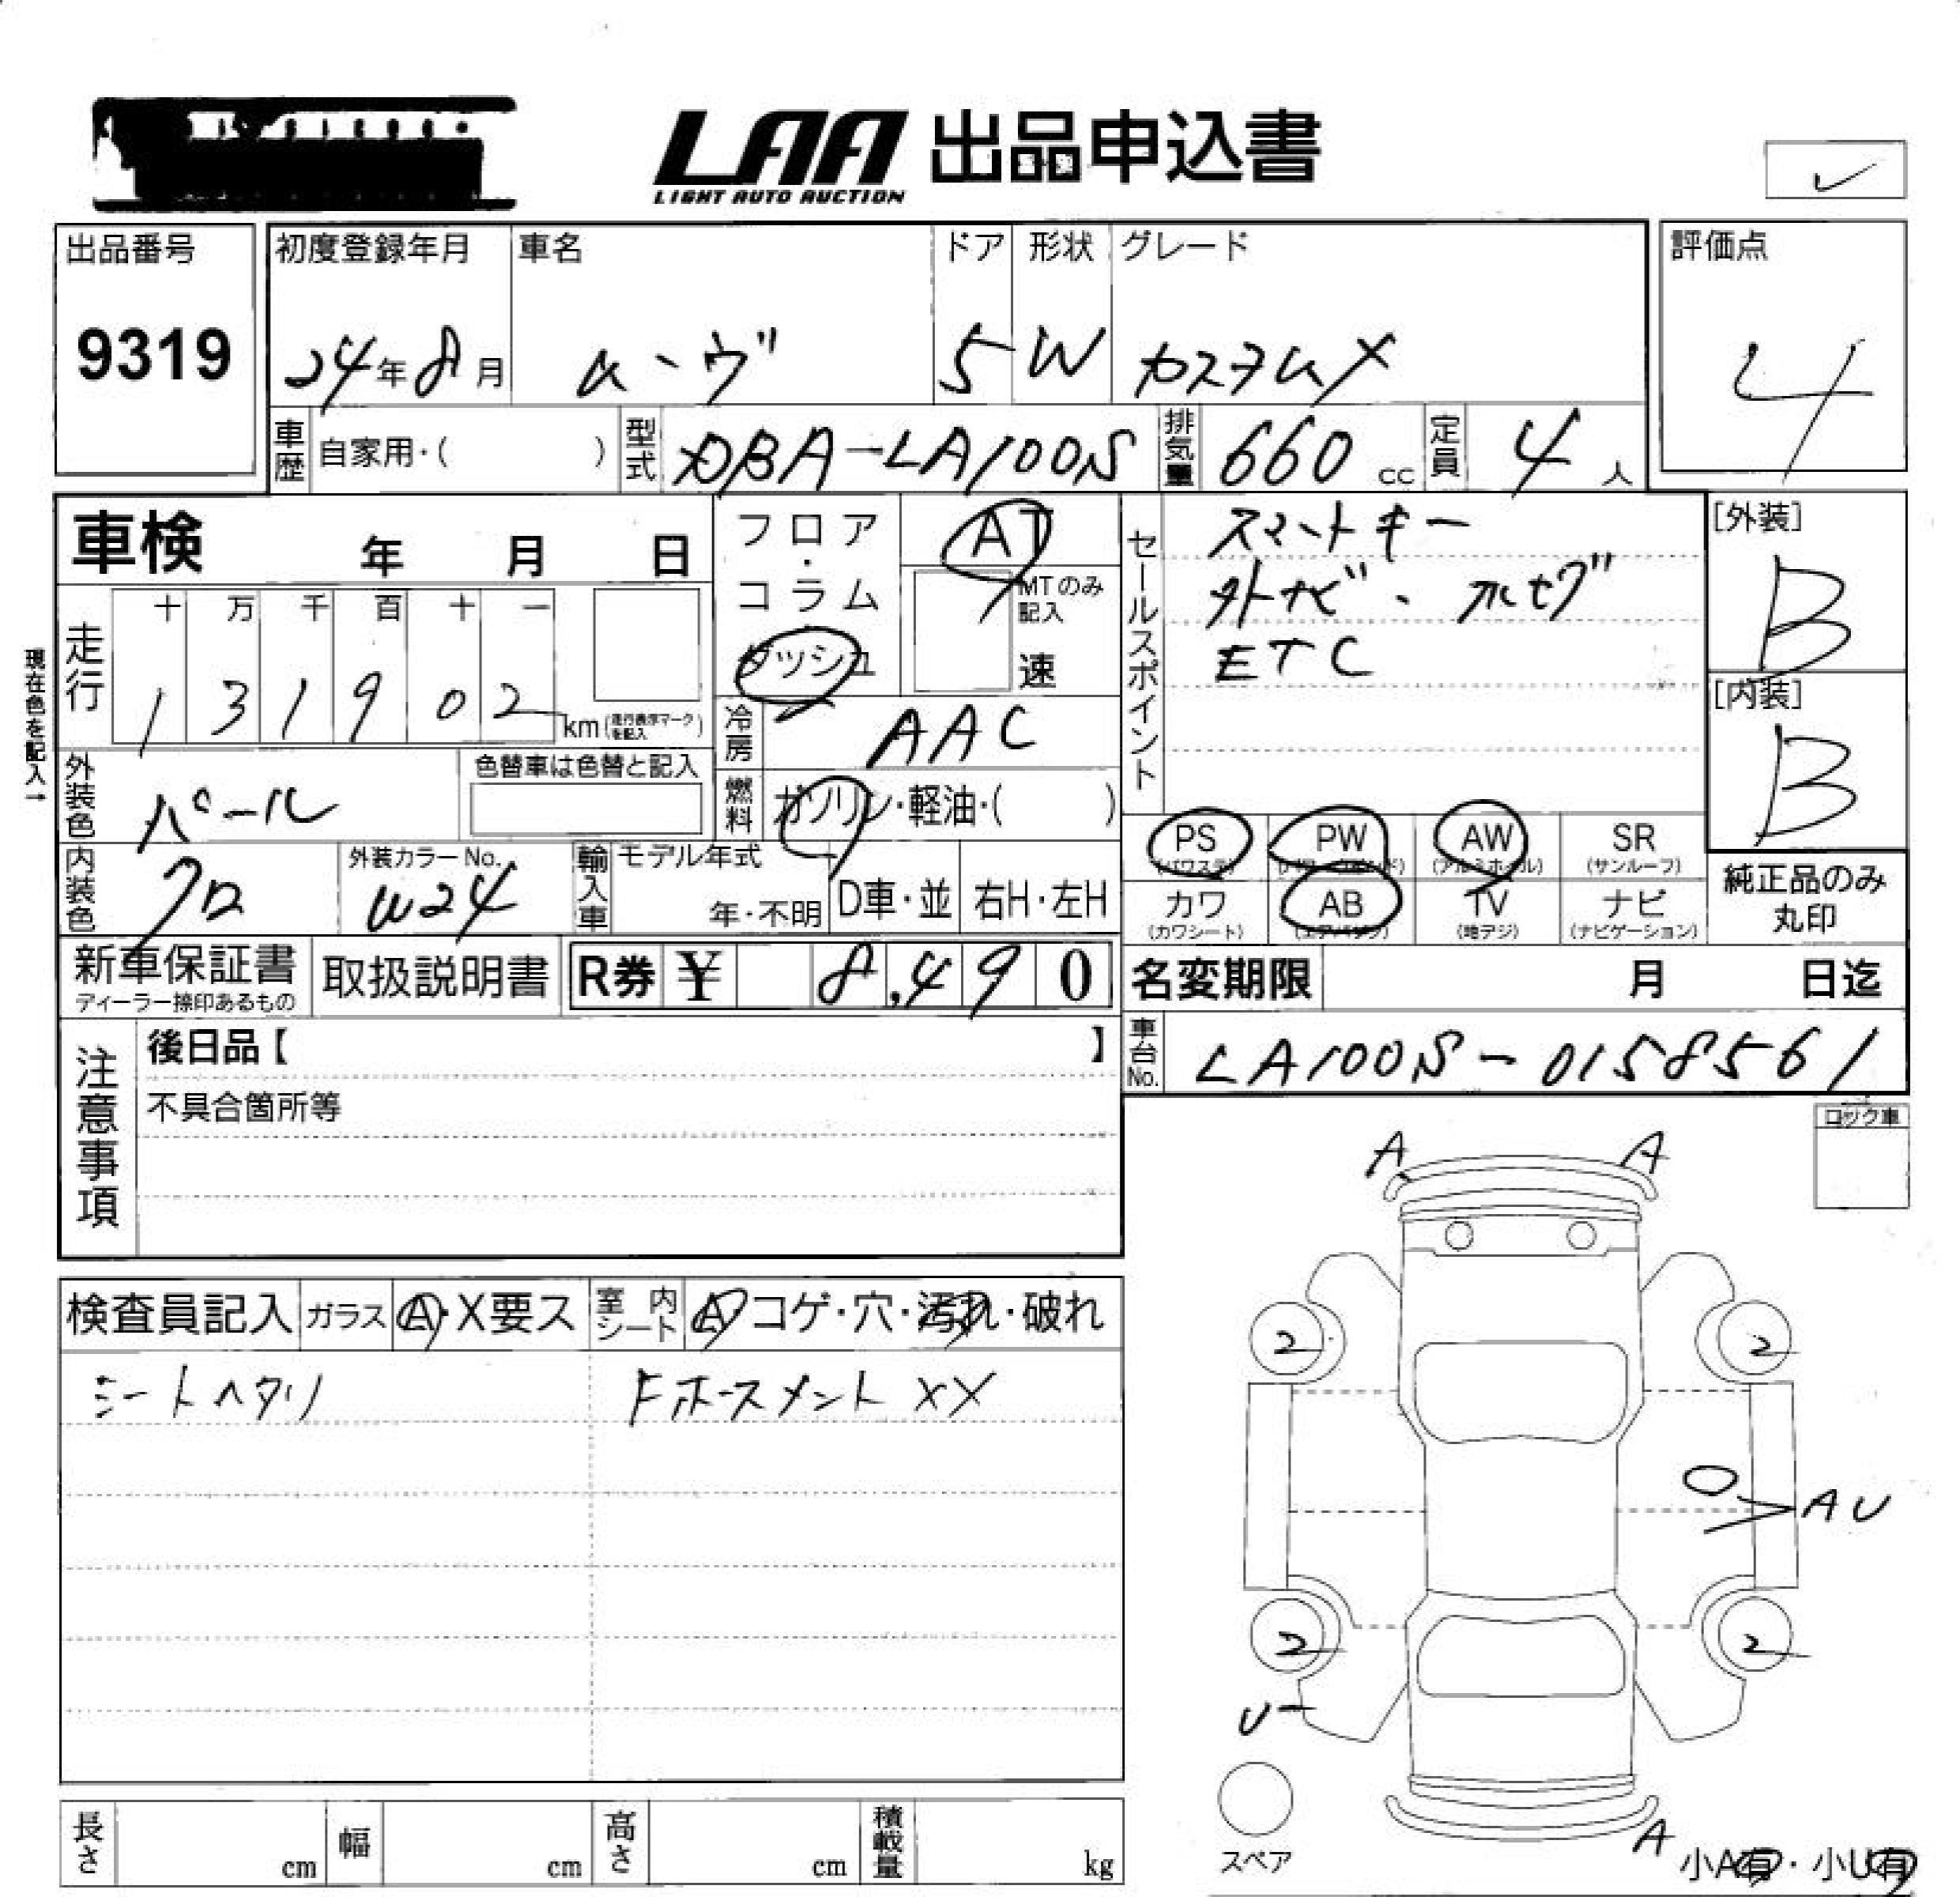 LAA 出品申込書
LIGHT AUTO AUCTION
✓
出品番号 初度登録年月 車名 ドア 形状 グレード 評価点
9319 24年8月 ムーヴ 5 W カスタムX 4
車歴 自家用・( ) 型式 DBA-LA100S 排気量 660 cc 定員 4 人
車検 年 月 日
フロア・コラム ダッシュ
AT
MTのみ記入
速
セールスポイント
スマートキー
外ナビ・フルセグ
ETC
[外装]
B
[内装]
B
現在色を記入→
走行 十 万 千 百 十 一
1 3 1 9 0 2 km (走行表示マークを記入)
冷房 AAC
外装色 パール 色替車は色替と記入
燃料 ガソリン・軽油・( )
内装色 クロ 外装カラーNo. W24 輸入車 モデル年式 年・不明 D車・並 右H・左H
PS (パワステ) PW (パワーウインド) AW (アルミホイル) SR (サンルーフ)
カワ (カワシート) AB (エアバッグ) TV (地デジ) ナビ (ナビゲーション)
純正品のみ
丸印
新車保証書 ディーラー捺印あるもの 取扱説明書 R券 ¥ 8,490
名変期限 月 日迄
車台No. LA100S-0158561
注意事項
後日品【 】
不具合箇所等
ロック車
検査員記入 ガラス A・X要ス 室内シート A コゲ・穴・汚れ・破れ
シートヘタリ Fホースメント XX
A A
2 2
AU
2 2
U
A
スペア
小A有・小U有
長さ cm 幅 cm 高さ cm 積載量 kg